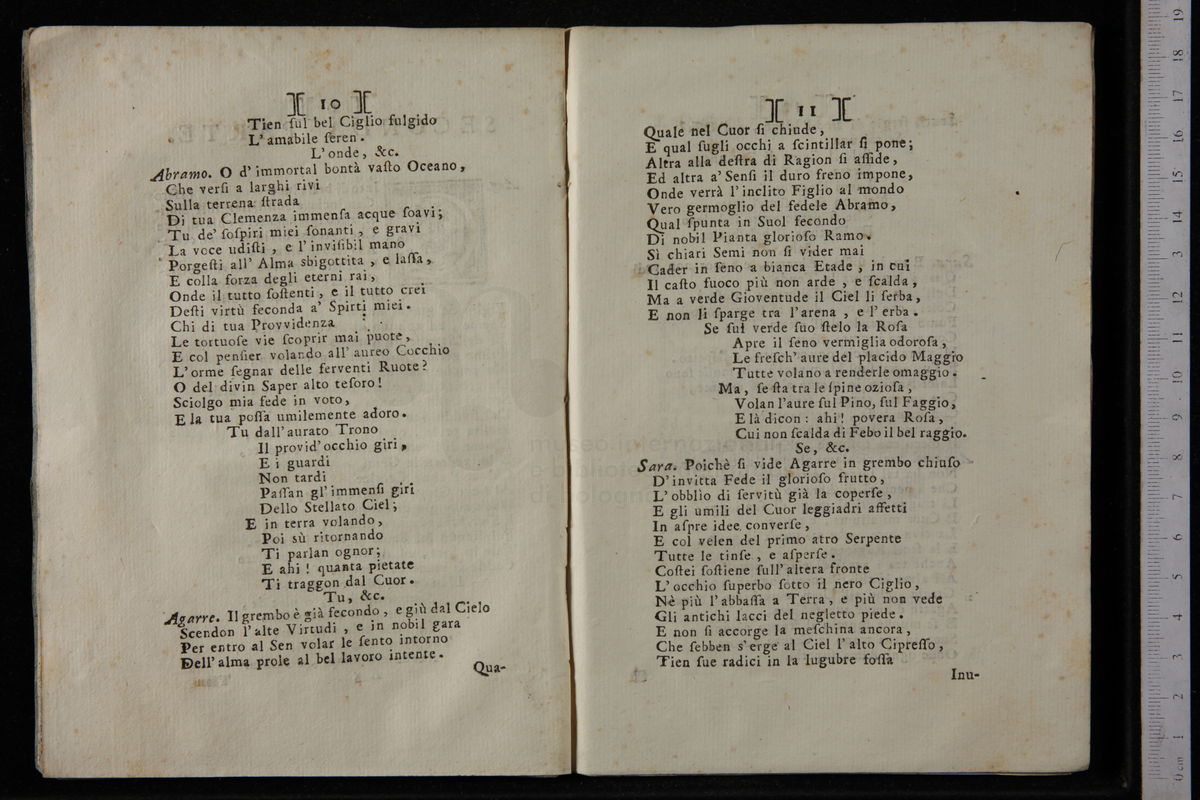 ][ 10 ][
Tien ſul bel Ciglio fulgido
L'amabile ſeren.
L'onde, &c.
Abramo. O d'immortal bontà vaſto Oceano,
Che verſi a larghi rivi
Sulla terrena ſtrada
Di tua Clemenza immenſa acque ſoavi;
Tu de' ſoſpiri miei ſonanti, e gravi
La voce udiſti, e l'inviſibil mano
Porgeſti all' Alma sbigottita, e laſſa,
E colla forza degli eterni rai,
Onde il tutto ſoſtenti, e il tutto crei
Deſti virtù feconda a' Spirti miei.
Chi di tua Provvidenza
Le tortuoſe vie ſcoprir mai puote,
E col penſier volando all' aureo Cocchio
L'orme ſegnar delle ferventi Ruote?
O del divin Saper alto teſoro!
Sciolgo mia fede in voto,
E la tua poſſa umilemente adoro.
Tu dall'aurato Trono
Il provid'occhio giri,
E i guardi
Non tardi
Paſſan gl'immenſi giri
Dello Stellato Ciel;
E in terra volando,
Poi sù ritornando
Ti parlan ognor;
E ahi! quanta pietate
Ti traggon dal Cuor.
Tu, &c.
Agarre. Il grembo è già fecondo, e giù dal Cielo
Scendon l'alte Virtudi, e in nobil gara
Per entro al Sen volar le ſento intorno
Dell'alma prole al bel lavoro intente.
Qua-
][ 11 ][
Quale nel Cuor ſi chiude,
E qual ſugli occhi a ſcintillar ſi pone;
Altra alla deſtra di Ragion ſi aſſide,
Ed altra a' Senſi il duro freno impone,
Onde verrà l'inclito Figlio al mondo
Vero germoglio del fedele Abramo,
Qual ſpunta in Suol fecondo
Di nobil Pianta glorioſo Ramo.
Sì chiari Semi non ſi vider mai
Cader in ſeno a bianca Etade, in cui
Il caſto fuoco più non arde, e ſcalda,
Ma a verde Gioventude il Ciel li ſerba,
E non li ſparge tra l'arena, e l'erba.
Se ſul verde ſuo ſtelo la Roſa
Apre il ſeno vermiglia odoroſa,
Le freſch' aure del placido Maggio
Tutte volano a renderle omaggio.
Ma, ſe ſta tra le ſpine ozioſa,
Volan l'aure ſul Pino, ſul Faggio,
E là dicon: ahi! povera Roſa,
Cui non ſcalda di Febo il bel raggio.
Se, &c.
Sara. Poichè ſi vide Agarre in grembo chiuſo
D'invitta Fede il glorioſo frutto,
L'obblio di ſervitù già la coperſe,
E gli umili del Cuor leggiadri affetti
In aſpre idee converſe,
E col velen del primo atro Serpente
Tutte le tinſe, e aſperſe.
Coſtei ſoſtiene ſull'altera fronte
L'occhio ſuperbo ſotto il nero Ciglio,
Nè più l'abbaſſa a Terra, e più non vede
Gli antichi lacci del negletto piede.
E non ſi accorge la meſchina ancora,
Che ſebben s'erge al Ciel l'alto Cipreſſo,
Tien ſue radici in la lugubre foſſa
Inu-